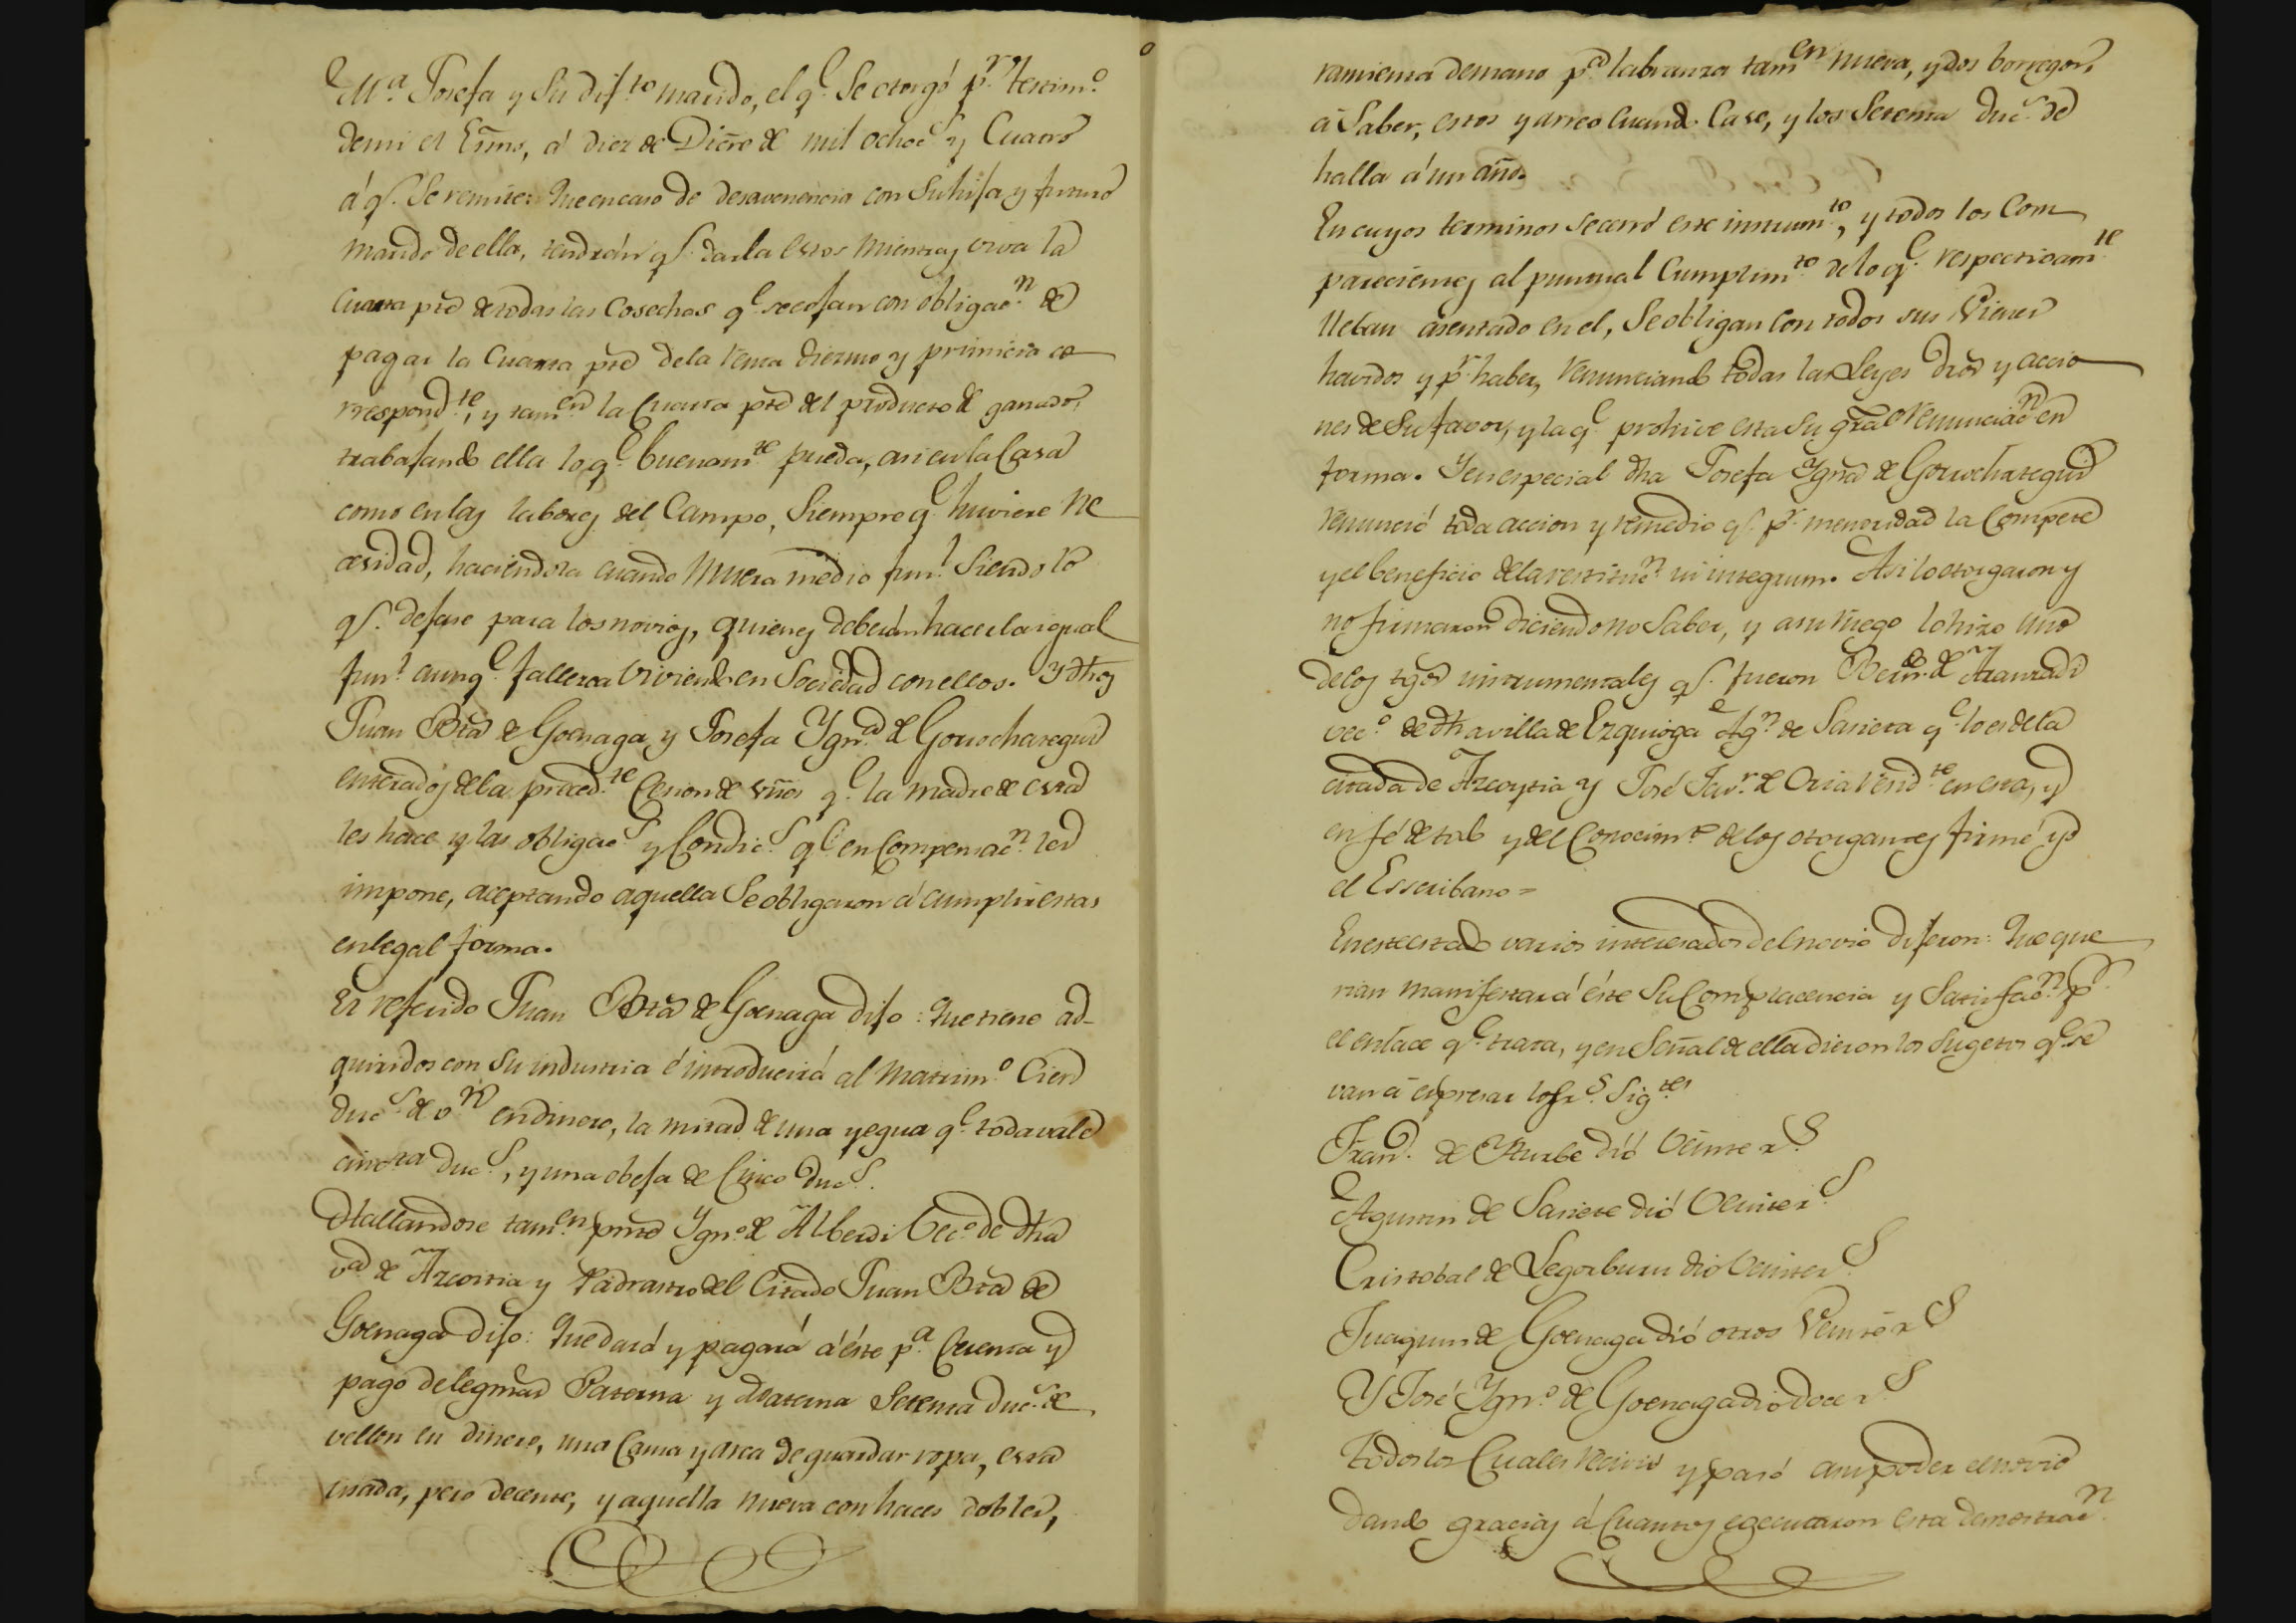 M.ª Josefa y su dif.to marido, el q.e se otorgó p.r testim.o
de mi el Essno, á diez de Dicre de mil ochoc.s y Cuatro
á q.e se remite: Que en caso de desavenencia con su hija y futuro
marido de ella, tendrán q.e darla estos mientras viva la
Cuarta pte de todas las Cosechas q.e se cojan con obligac.n de
pagar la Cuarta pte de la renta diezmo y primicia co
rrespond.te, y tam.en la Cuarta pte del producto de ganado,
trabajando ella lo q.e buenam.te pueda, asi en la Casa
como en las labores del Campo, siempre q.e huviere ne
cesidad, haciendola cuando muera medio fun.l siendo lo
q.e dejare para los novios, quienes deberán hacerla igual
fun.l aunq.e fallezca viviendo en Sociedad con ellos. Y dhos
Juan Bta de Goenaga y Josefa Ygn.a de Gorrochategui
enterados de la preced.te Cesion de vnes q.e la madre de esta
les hace y las obligac.s y Condic.s q.e en Compensac.n les
impone, aceptando aquella se obligaron á cumplir estas
en legal forma.
El referido Juan Bta de Goenaga dijo: Que tiene ad-
quiridos con su industria é introducirá al Matrim.o Cien
duc.s de v.n en dinero, la mitad de una yegua q.e toda vale
cin.ta duc.s, y una obeja de Cinco duc.s.
Hallandose tam.en pnte Ygn.o de Alberdi Vec.o de dha
v.a de Azcoitia y Padrastro del Citado Juan Bta de
Goenaga dijo: Que dará y pagará á éste p.a Cuenta y
pago de legmas Paterna y Materna Setenta duc.s de
vellon en dinero, una Cama y arca de guardar ropa, esta
usada, pero decente, y aquella nueva con haces dobles,
ramienta de mano p.a labranza tam.en nueva, y dos borregos,
á saber, estos y arreo cuando Case, y los Setenta duc.s de
halla á un año.
En cuyos terminos se cerró este instrum.to, y todos los Com
parecientes al puntual Cumplim.to de lo q.e respectivam.te
lleban asentado en el, se obligan con todos sus Vienes
havidos y p.r haber, renunciando todas las Leyes dros y accio
nes de su favor, y la q.e prohive esta su gral renunciac.n en
forma. Y en especial dha Josefa Ygna de Gorrochategui
renunció toda accion y remedio q.e p.r menoridad la Compete
y el beneficio de la restituc.n in integrum. Asi lo otorgaron y
no firmaron diciendo no saber, y a su ruego lo hizo uno
de los tgos instrumentales q.e fueron Bern.do de Aranzadi
vec.o de dha villa de Ezquioga Ag.n de Sarieta q.e lo es de la
citada de Azcoytia y José Jav.r de Oria resid.te en esta, y
en fé de todo y del Conocim.to de los otorgantes firmé yo
el Esscribano=
En este estado varios interesados del novio dijeron: Que que
rian manifestar á éste su Complacencia y Satisfac.n p.r
el enlace q.e trata, y en señal de ella dieron los sugetos q.e se
van á expresar los r.s sig.tes
Fran.co de Yturbe dió Veinte r.s
Agustin de Sariete dió Veinte r.s
Cristobal de Legorburu dio Veinte r.s
Juaquin de Goenaga dió otros Veinte r.s
Y José Ygn.o de Goenaga dio doce r.s
Todos los Cuales recivió y pasó a su poder el novio
dando gracias á Cuantos egecutaron esta demostrac.n